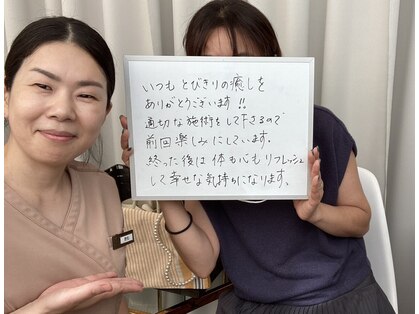 いつも とびきりの癒しを
ありがとうございます!!
適切な施術をして下さるので
前回楽しみにしています。
終った後は 体も心もリフレッシュ
して幸せな気持ちになります。